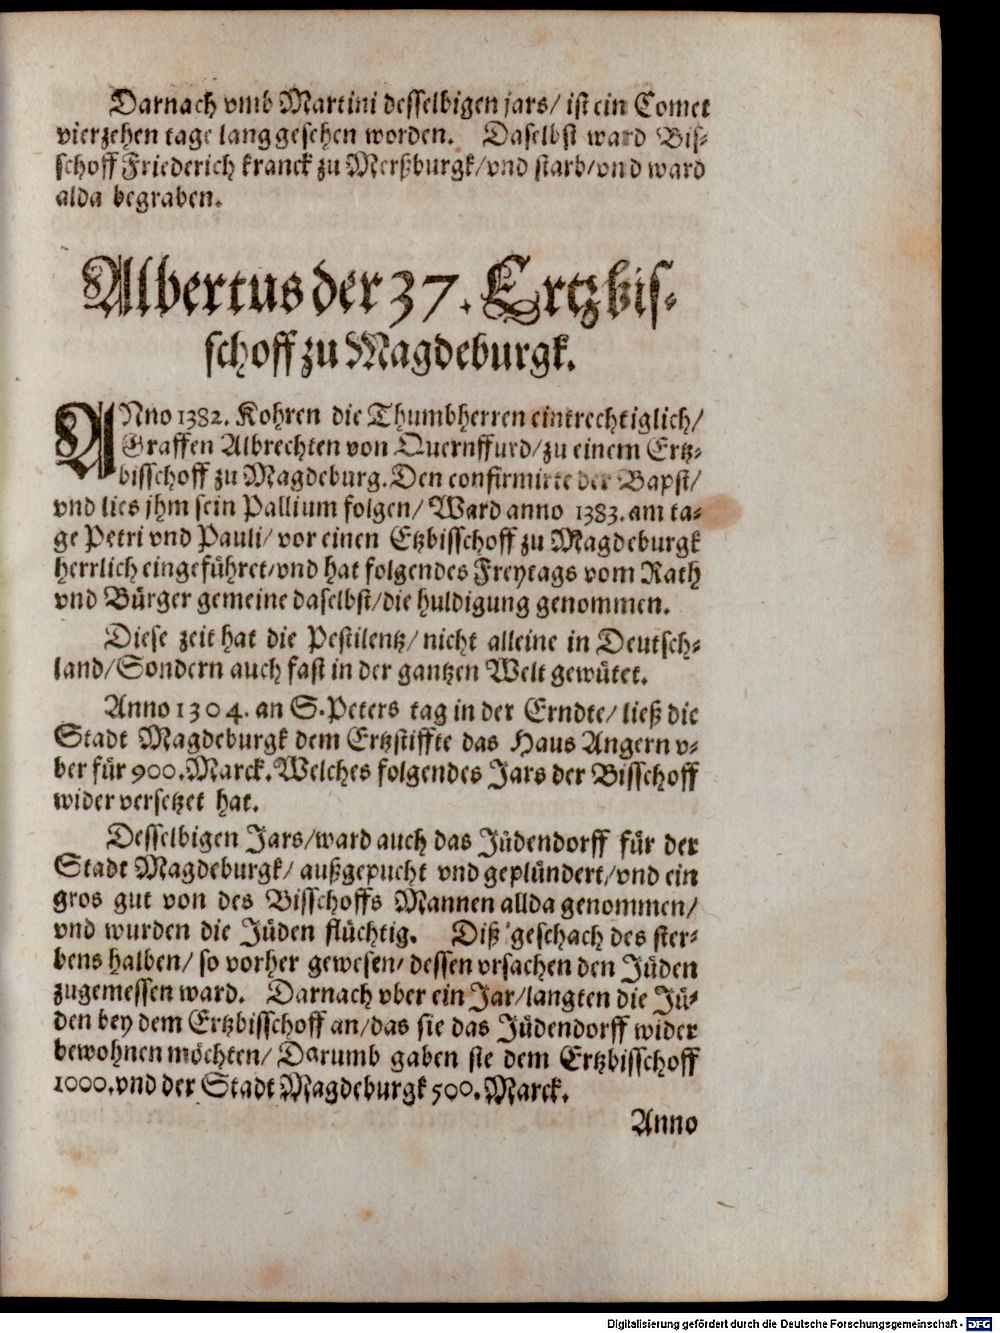 Darnach vmb Martini desselbigen jars/ ist ein Comet
vierzehen tage lang gesehen worden. Daselbst ward Bis-
schoff Friederich kranck zu Merßburgk/vnd starb/vnd ward
alda begraben.
Albertus der 37. Ertzbis-
schoff zu Magdeburgk.
ANno 1382. Kohren die Thumbherren eintrechtiglich/
Graffen Albrechten von Quernffurd/zu einem Ertz-
bisschoff zu Magdeburg. Den confirmirte der Bapst/
vnd lies jhm sein Pallium folgen/ Ward anno 1383. am ta-
ge Petri vnd Pauli/ vor einen Etzbisschoff zu Magdeburgk
herrlich eingeführet/vnd hat folgendes Freytags vom Rath
vnd Bürger gemeine daselbst/die huldigung genommen.
Diese zeit hat die Pestilentz/ nicht alleine in Deutsch-
land/Sondern auch fast in der gantzen Welt gewütet.
Anno 1304. an S. Peters tag in der Erndte/ ließ die
Stadt Magdeburgk dem Ertzstiffte das Haus Angern v-
ber für 900. Marck. Welches folgendes Jars der Bisschoff
wider versetzet hat.
Desselbigen Jars/ward auch das Jüdendorff für der
Stadt Magdeburgk/ außgepucht vnd geplündert/vnd ein
gros gut von des Bisschoffs Mannen allda genommen/
vnd wurden die Jüden flüchtig. Diß geschach des ster-
bens halben/ so vorher gewesen/ dessen vrsachen den Jüden
zugemessen ward. Darnach vber ein Jar/langten die Jü-
den bey dem Ertzbisschoff an/das sie das Jüdendorff wider
bewohnen möchten/ Darumb gaben sie dem Ertzbisschoff
1000. vnd der Stadt Magdeburgk 500. Marck.
Anno
Digitalisierung gefördert durch die Deutsche Forschungsgemeinschaft - DFG